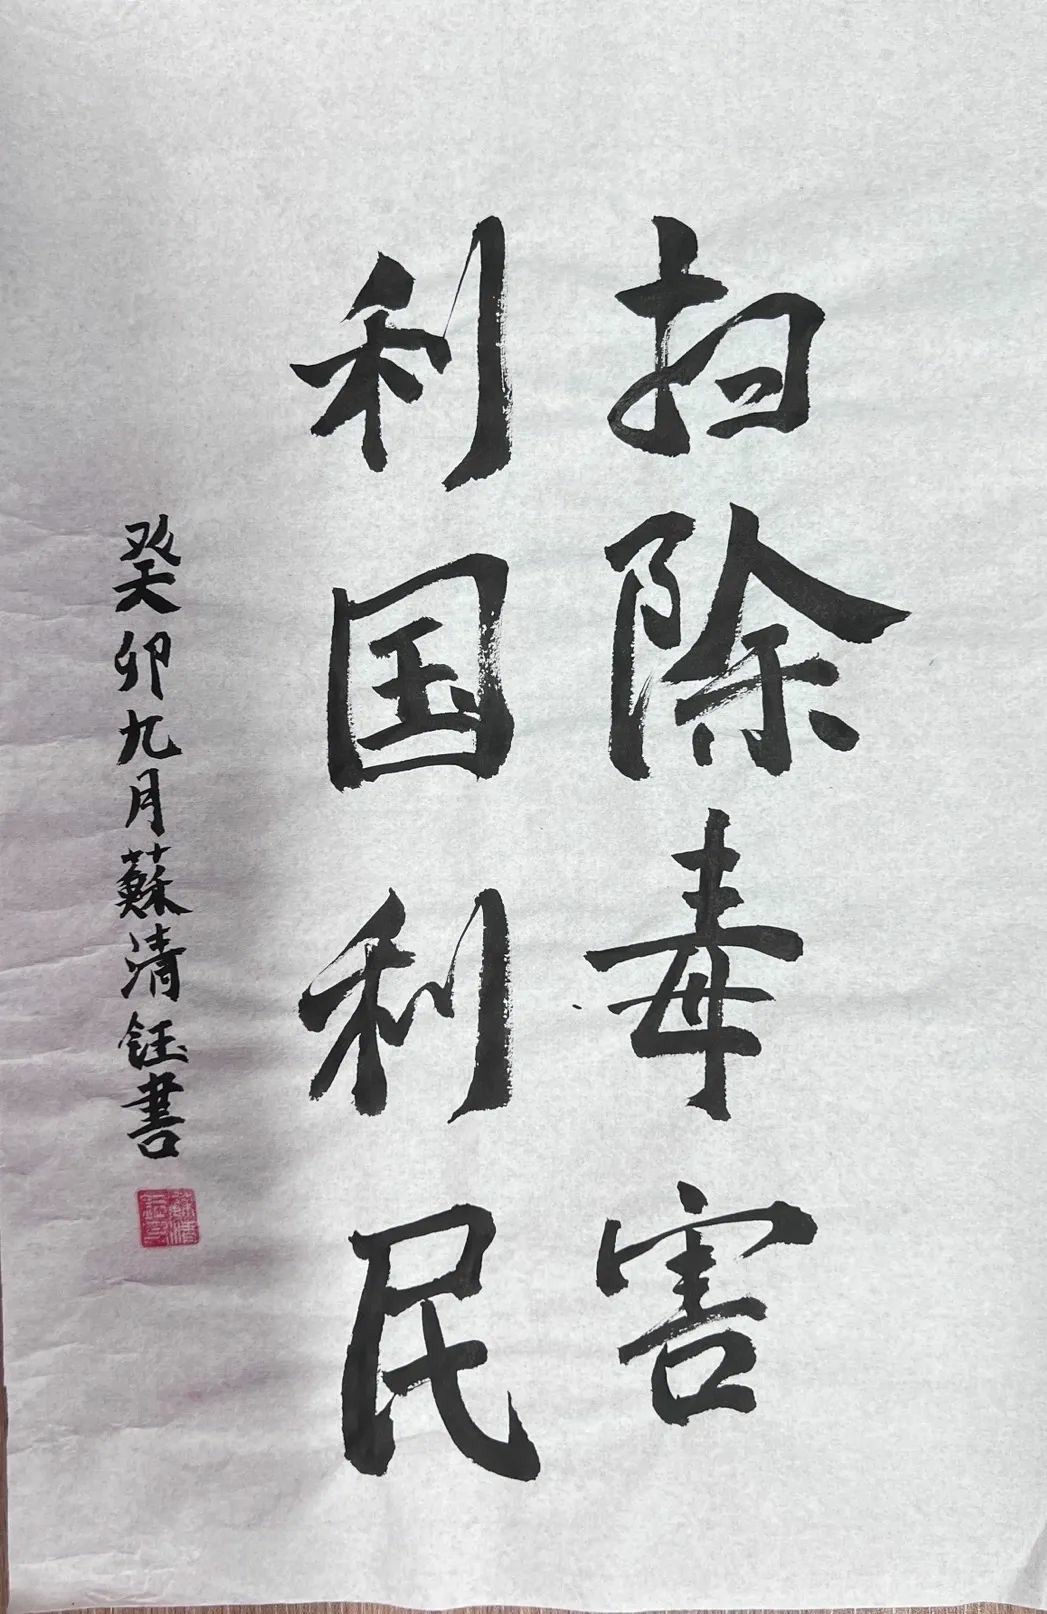 扫除毒害
利国利民
癸卯九月蘇清鈺書